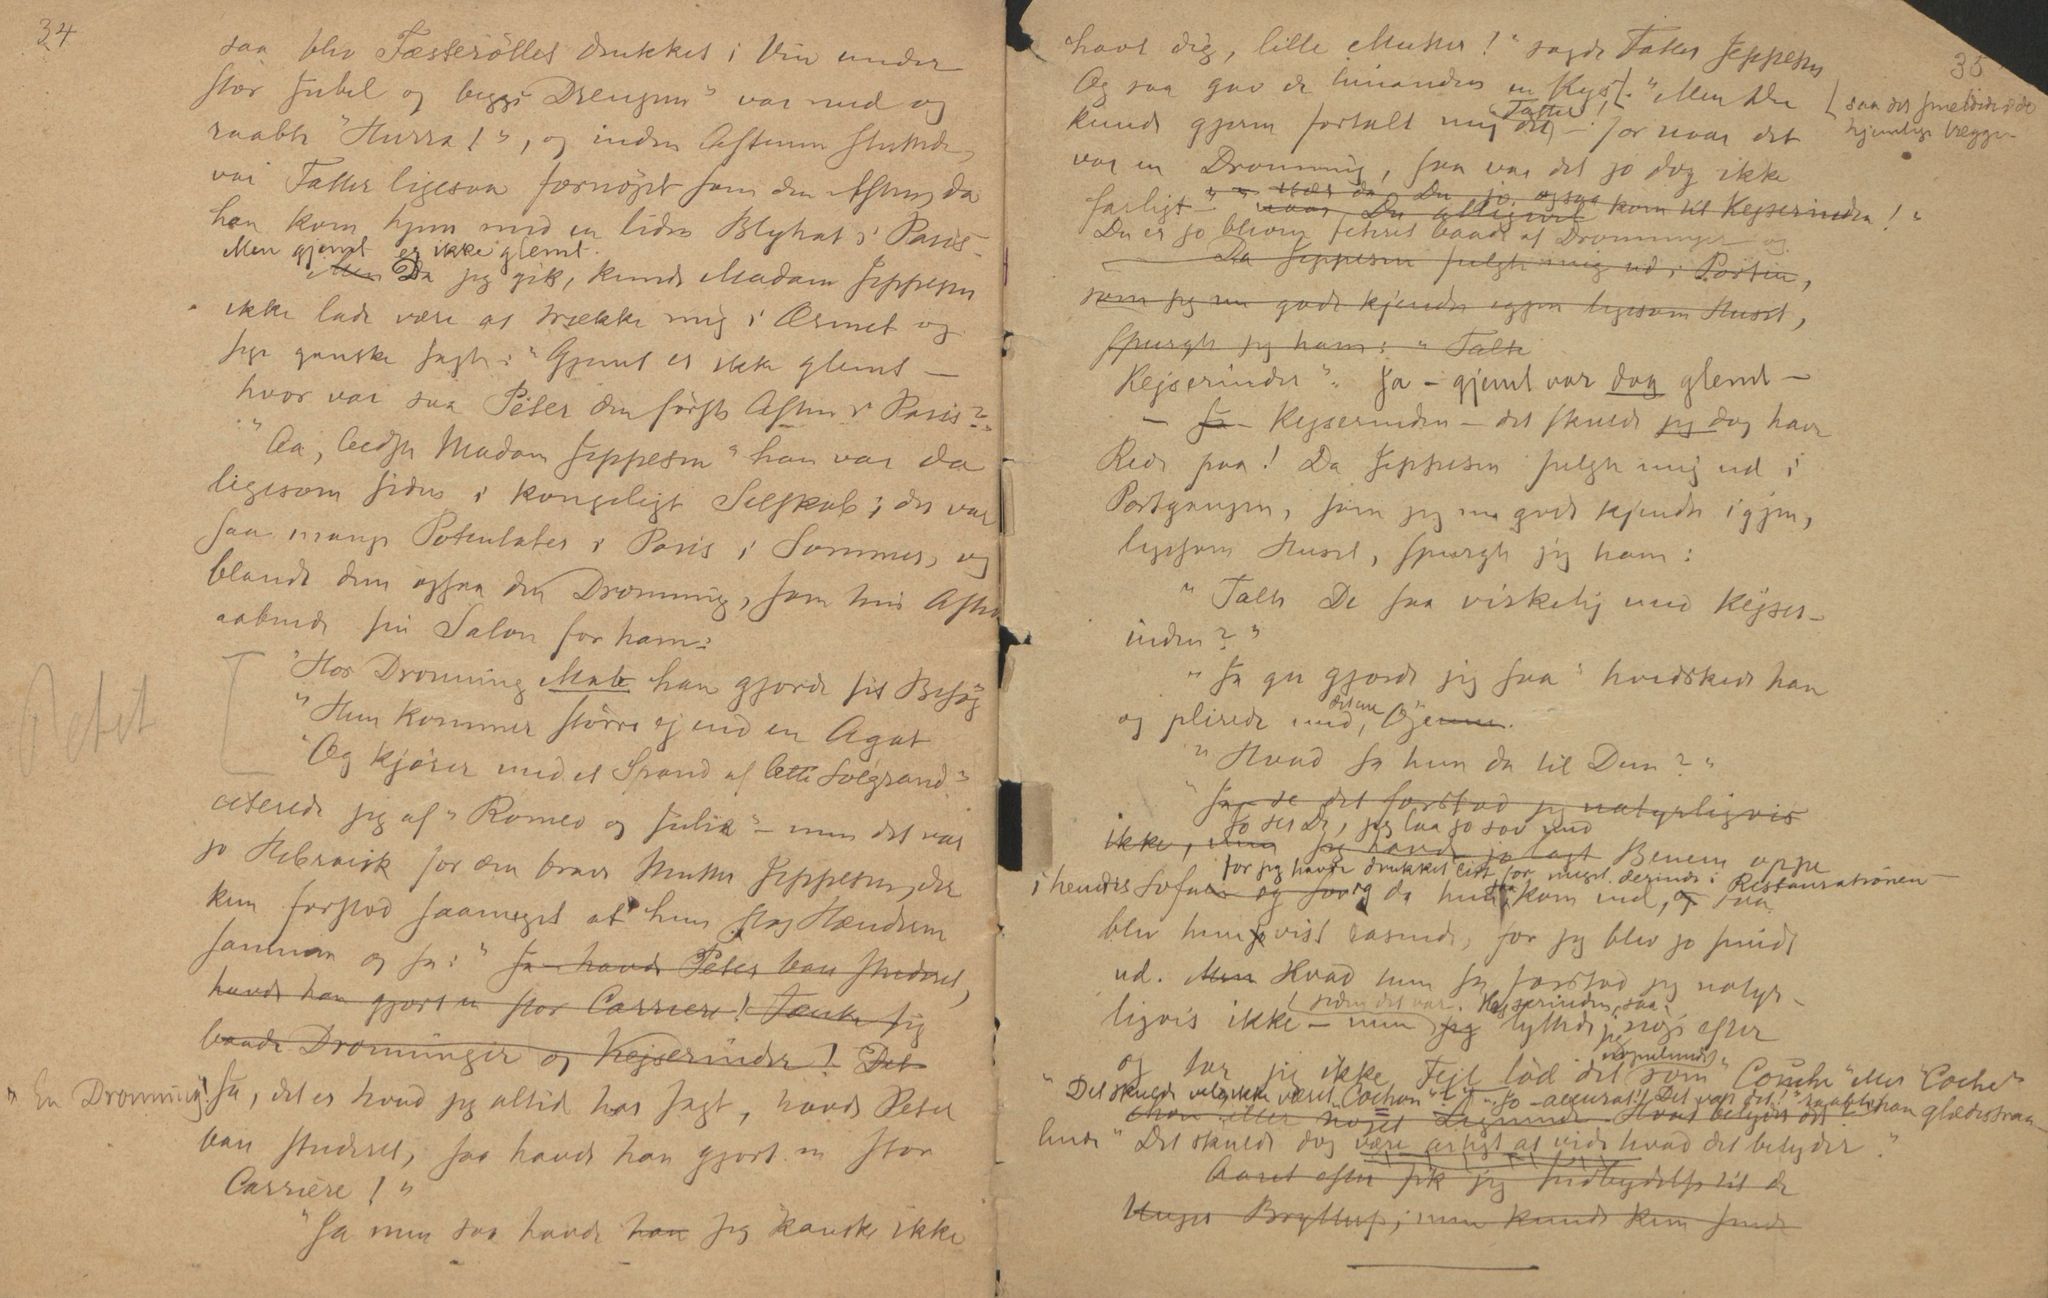 34
saa blev Fæsterøllet drukket i Vin under
stor Jubel og begge "Drengene" var med og
raabte "Hurra!", og inden Aftenen sluttede,
var Fatter ligesaa fornøjet som den Aften, da
han kom hjem med en liden Blyhat i Paris.
Men gjemt er ikke glemt.
Men Da jeg gik, kunde Madam Jeppesen
ikke lade være at trække mig i Ærmet og
sige ganske sagte: "Gjemt er ikke glemt —
hvor var saa Peter den første Aften i Paris?"
"Aa, bedste Madam Jeppesen" han var da
ligesom siden i kongeligt Selskab; der var
saa mange Potentater i Paris i Sommer, og
blandt dem ogsaa den Dronning, som hin Aften
aabnede sin Salon for ham:
Petit
"Hos Dronning Mab han gjorde sit Besøg
"Hun kommer større ej end en Agat
"Og kjører med et Spand af lette Solgrand."
citerede jeg af "Romeo og Julie" — men det var
jo Hebraisk for den brave Mutter Jeppesen, der
kun forstod saameget at hun slog Hænderne
sammen og sa: "Ja havde Peter bare studeret,
havde han gjort en stor Carriere! Tænke sig
baade Dronninger og Kejserinder! Det
"En Dronning! Ja, det er hvad jeg altid har sagt, havde Peter
bare studeret, saa havde han gjort en stor
Carriere!"
"Ja men saa havde han jeg kanske ikke
35
havt dig, lille Mutter!" sagde Fatter Jeppesen
Og saa gav de hinanden et Kys. "Men Du
saa det smeldede i de
hjemlige Vægge.
kunde gjerne fortalt mig det, Fatter! — for naar det
var en Dronning, saa var det jo dog ikke
farligt — " især da Du jo ogsaa kom til Kejserinden!"
naar Du alligevel
Du er jo bleven feteret baade af Dronninger og
Da Jeppesen fulgte mig ud i Porten,
som jeg nu godt kjendte igjen ligesom Huset,
spurgte jeg ham: "Talte
Kejserinder". Ja — gjemt var dog glemt —
— Ja — Kejserinden — det skulde jeg dog have
Rede paa! Da Jeppesen fulgte mig ud i
Portgangen, som jeg nu godt kjendte igjen,
ligesom Huset, spurgte jeg ham:
"Talte De saa virkelig med Kejser-
inden?"
"Ja gu gjorde jeg saa" hvidskede han
og plirede med det ene Øje.
"Hvad sa hun da til Dem?"
"Ja se det forstod jeg naturligvis
Jo ser De, jeg laa jo sov med
ikke, men jeg havde jo lagt Benene oppe
for jeg havde drukket lidt for meget derinde i Restaurationen
i hendes Sofa og sov, da hun kom ind, og saa
blev hun jo vist rasende, for jeg blev jo smidt
ud. Men Hvad hun sa forstod jeg natur-
ligvis ikke — men siden det var Kejserinden, saa lyttede jeg nøje efter
og tar jeg ikke Fejl lød det som "Couche" eller "Coche"
"Det skulde vel ikke være "Cochon"?" "Jo — accurat! Det var det!" raabte han glædestraa-
lende "Det skulde dog være artigt at vide hvad det betyder."
Aaret efter fik jeg Indbydelse til de
Unges Bryllup; men kunde kun sende